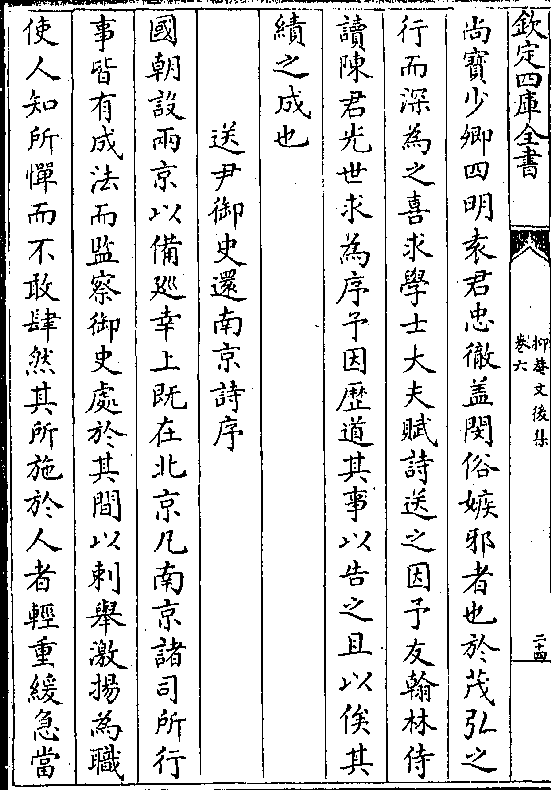 欽定四庫全書
抑菴文後集
卷六
二十四
尚寶少卿四明袁君忠徹盖閔俗嫉邪者也於茂弘之
行而深為之喜求學士大夫賦詩送之因予友翰林侍
讀陳君光世求為序予因歴道其事以告之且以俟其
績之成也
送尹御史還南京詩序
國朝設兩京以備廵幸上既在北京凡南京諸司所行
事皆有成法而監察御史處於其間以刺舉激揚為職
使人知所憚而不敢肆然其所施於人者輕重緩急當